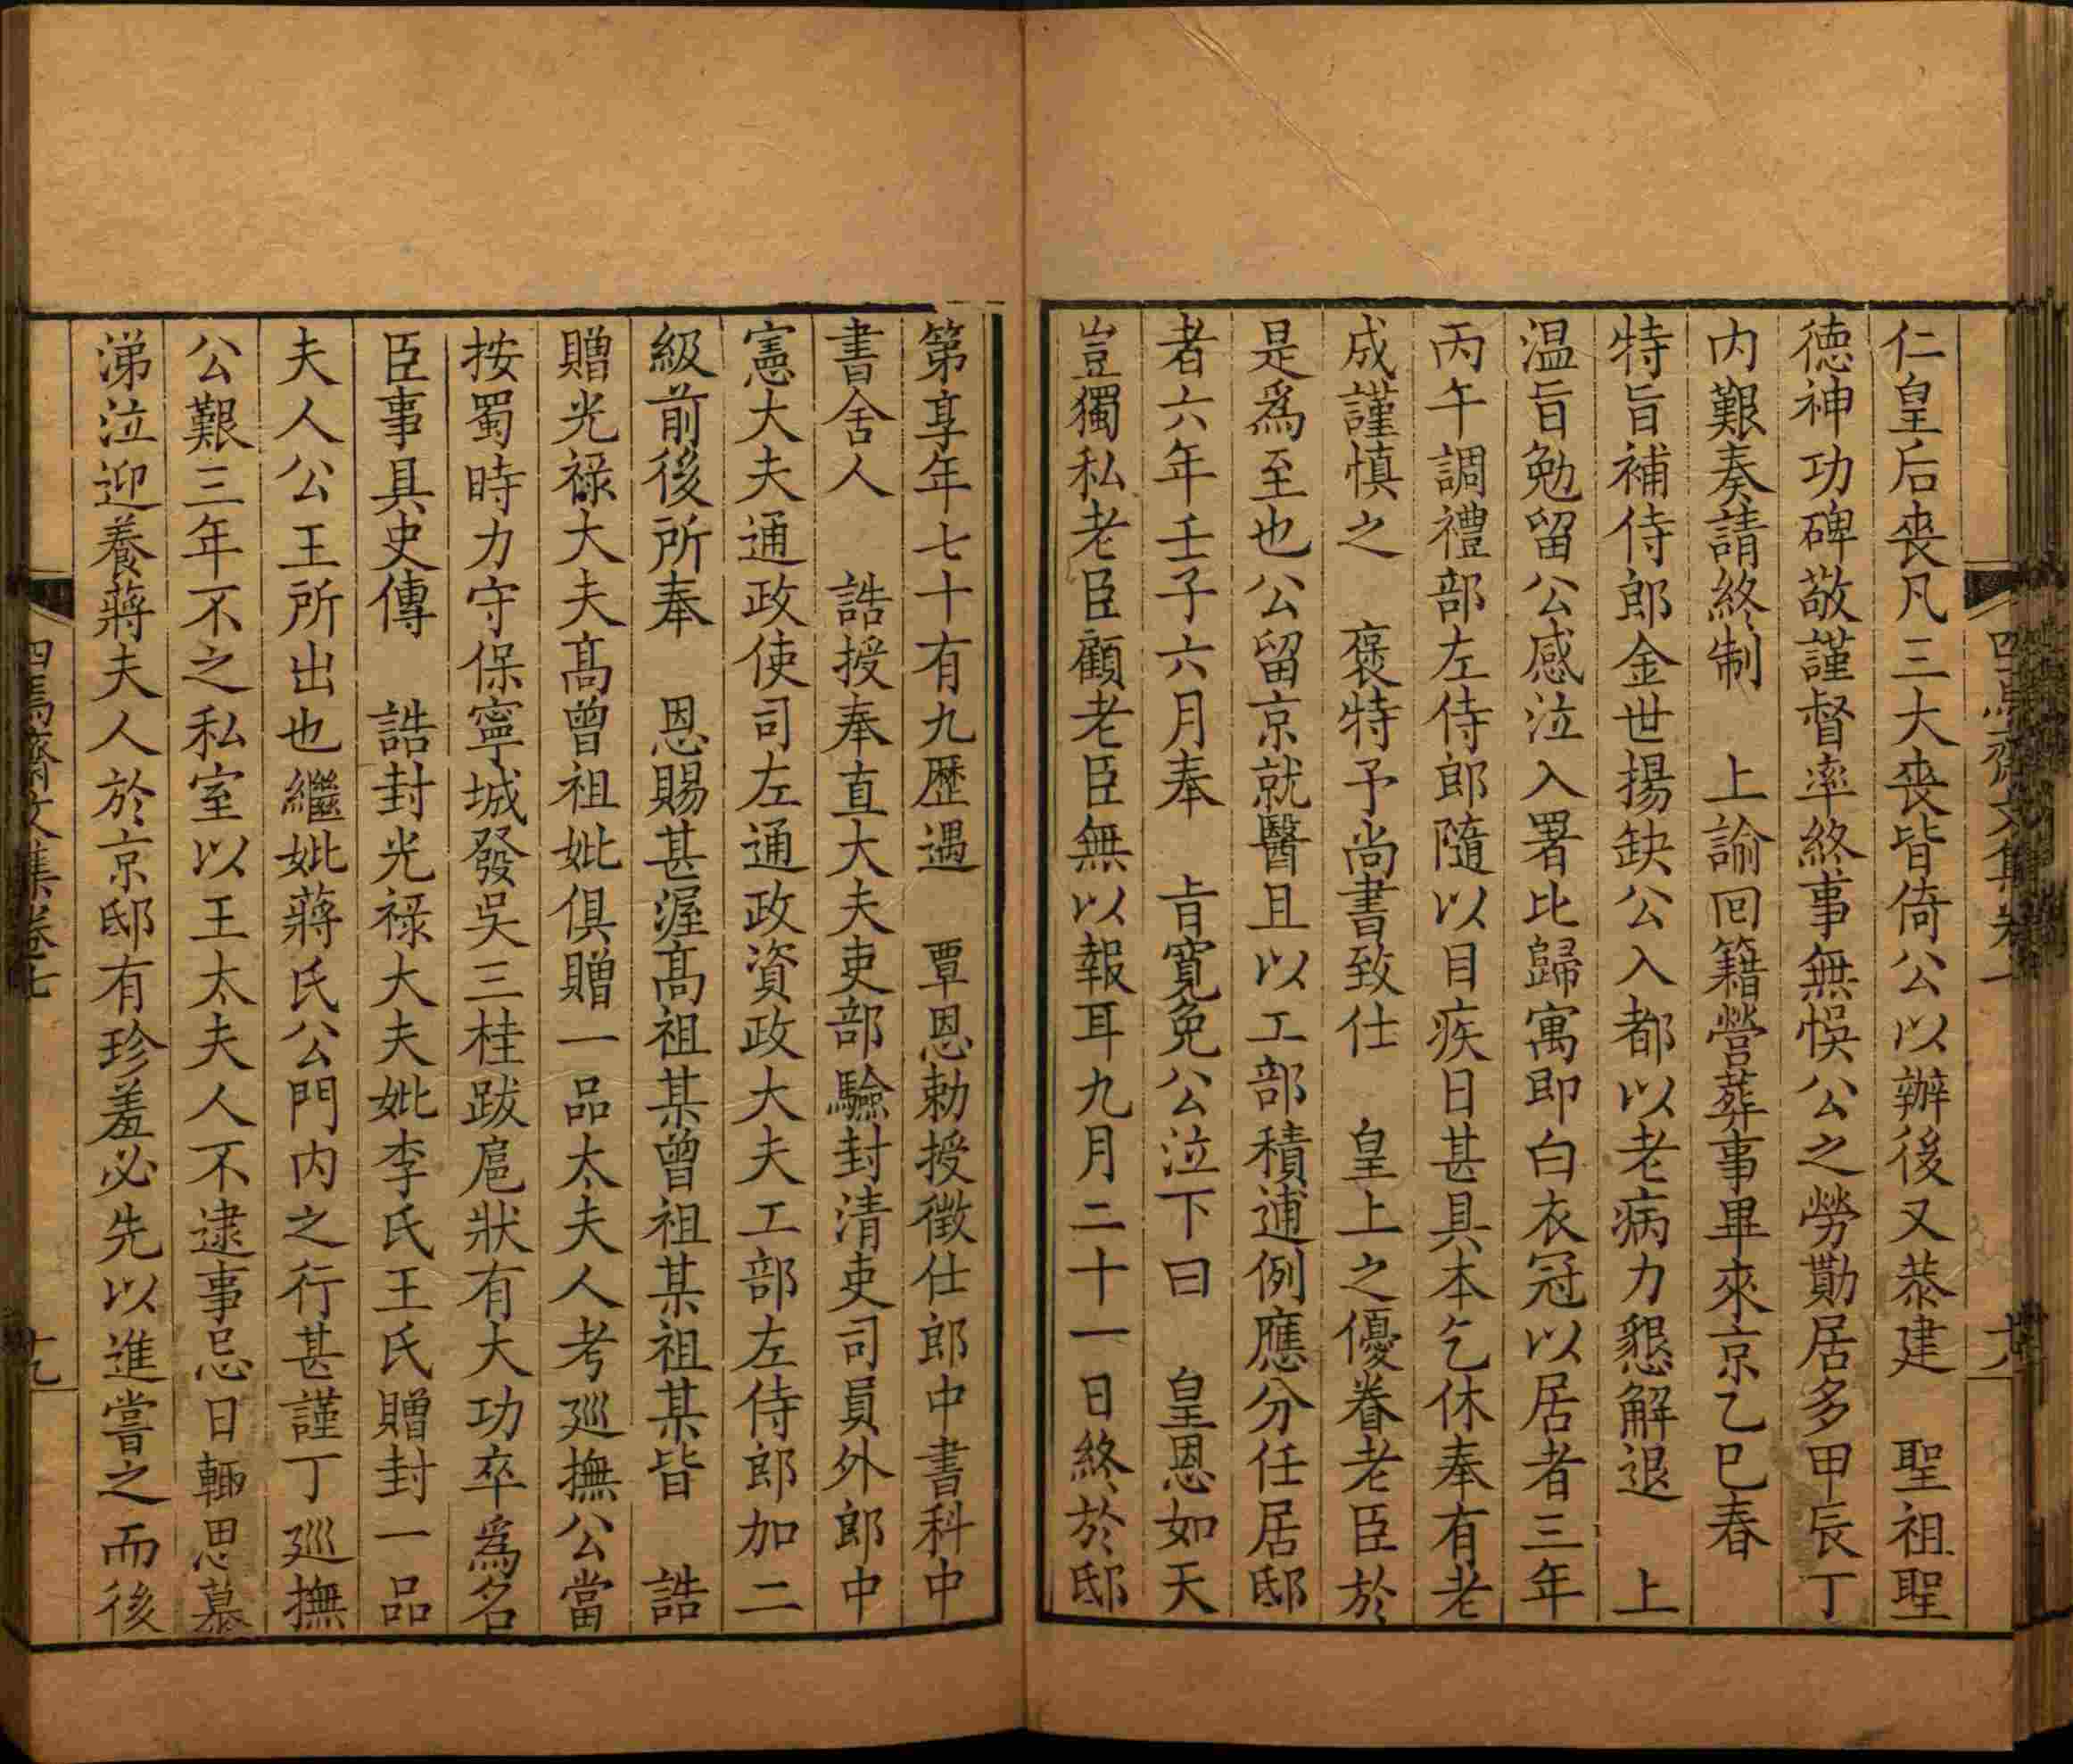 仁皇后喪凡三大喪皆倚公以辦後又恭建　聖祖聖
德神功碑敬謹督率終事無悞公之勞勩居多甲辰丁
内艱奏請終制　上諭回籍營葬事畢來京乙巳春
特旨補侍郎金世揚缺公入都以老病力懇解退　上
温旨勉留公感泣入署比歸寓即白衣冠以居者三年
丙午調禮部左侍郎隨以目疾日甚具本乞休奉有老
成謹慎之　褒特予尚書致仕　皇上之優眷老臣於
是爲至也公留京就醫且以工部積逋例應分任居邸
者六年壬子六月奉　旨寛免公泣下曰　皇恩如天
豈獨私老臣顧老臣無以報耳九月二十一日終於邸
第享年七十有九歷遇　覃恩勅授徵仕郎中書科中
書舍人　誥授奉直大夫吏部驗封清吏司員外郎中
憲大夫通政使司左通政資政大夫工部左侍郎加二
級前後所奉　恩賜甚渥高祖某曾祖某祖某皆　誥
贈光禄大夫高曾祖妣俱贈一品太夫人考廵撫公當
按蜀時力守保寧城發吳三桂跋扈狀有大功卒爲名
臣事具史傳　誥封光禄大夫妣李氏王氏贈封一品
夫人公王所出也繼妣蔣氏公門内之行甚謹丁廵撫
公艱三年不之私室以王太夫人不逮事忌日輒思慕
涕泣迎養蔣夫人於京邸有珍羞必先以進嘗之而後
四焉齋文集卷七
十九